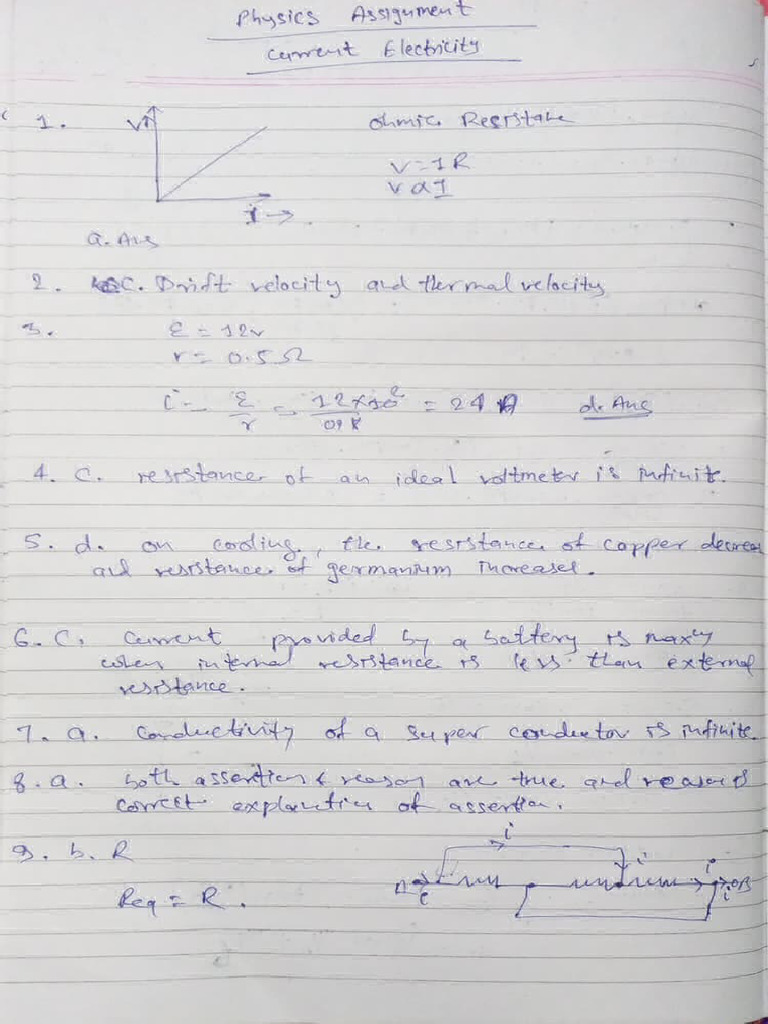 Physics Assignment
Current Electricity
1. V↑ ohmic Resistance
V = IR
V α I
I →
a. Ans
2. C. Drift velocity and thermal velocity
3. ε = 12v
r = 0.5 Ω
i = ε/r = 12×10² = 24 A d. Ans
4. C. resistance of an ideal voltmeter is infinite.
5. d. on cooling, the resistance of copper decreas
and resistance of germanium increases.
6. C. Current provided by a battery is maxm
when internal resistance is less than external
resistance.
7. a. Conductivity of a super conductor is infinite.
8. a. both assertion & reason are true and reason is
correct explanation of assertion.
9. b. R
i
A i i i B
i
Req = R.